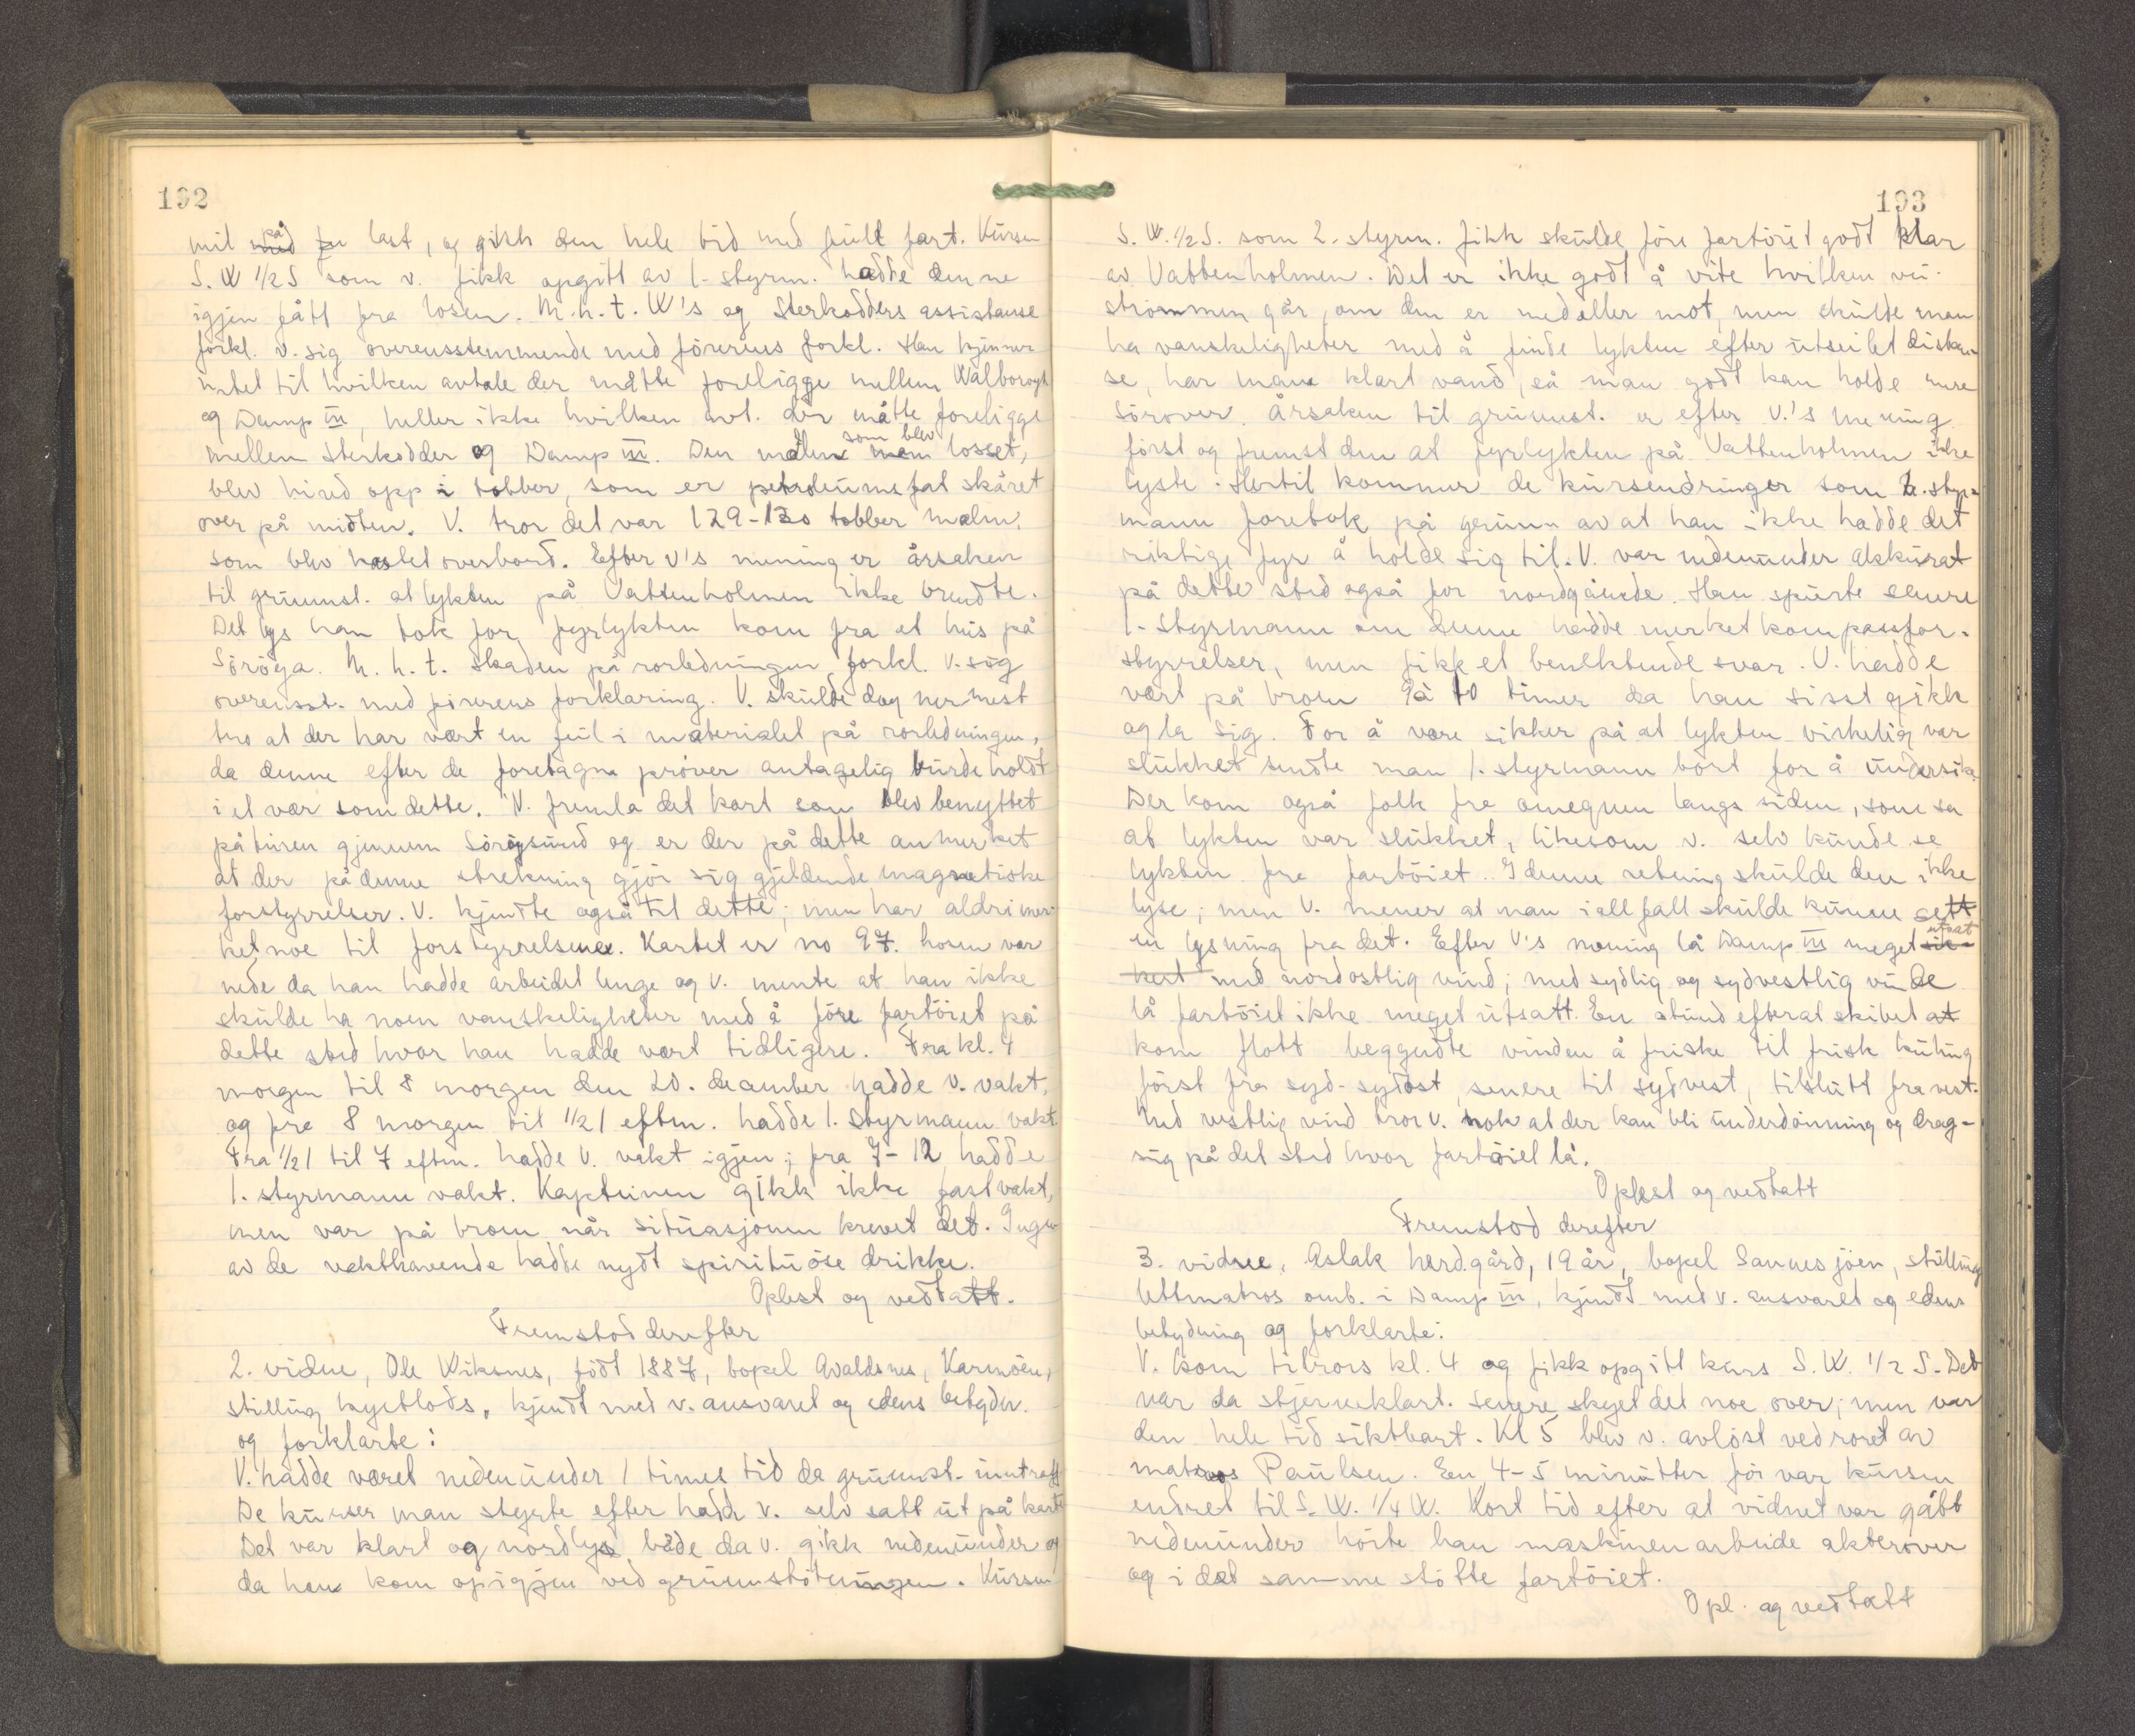 192
mil på last, og gikk den hele tid med full fart. Kursen
S.W 1/2 S som v. fikk opgitt av 1-styrm. hadde denne
igjen fått fra losen. M.h.t. W's og Sterkodders assistanse
forkl. v. sig overensstemmende med förerens forkl. Han kjenner
intet til hvilken avtale der måtte foreligge mellem Walborogh
og Damp III, heller ikke hvilken avt. der måtte foreligge
mellem Sterkodder og Damp III. Den malm som blev losset,
blev hived opp i tobber, som er petroleumsfat skåret
over på midten. V. tror det var 129-130 tobber malm,
som blev kastet overbord. Efter v's mening er årsaken
til grunnst. at lykten på Vattenholmen ikke brendte.
Det lys han tok for fyrlykten kom fra et hus på
Söröya. M.h.t. skaden på rorledningen forkl. v. sig
overensst. med förerens forklaring. V. skulde dog nermest
tro at der har vært en feil i materialet på rorledningen,
da denne efter de foretagne pröver antagelig burde holdt
i et vær som dette. V. fremla det kart som blev benyttet
på turen gjennem Söröysund og er der på dette anmerket
at der på denne strekning gjör sig gjeldende magnetiske
forstyrrelser. V. kjendte også til dette; men har aldri mer-
ket noe til forstyrrelsene. Kartet er no 97. losen var
nede da han hadde arbeidet lenge og v. mente at han ikke
skulde ha noen vanskeligheter med å före fartöiet på
dette sted hvor han hadde vært tidligere. Fra kl. 4
morgen til 8 morgen den 20. december hadde v. vakt,
og fra 8 morgen til 1/2 1 eftm. hadde 1. styrmann vakt.
Fra 1/2 1 til 7 eftm. hadde v. vakt igjen; fra 7-12 hadde
1. styrmann vakt. Kapteinen gikk ikke fast vakt,
men var på broen når situasjonen krevet det. Ingen
av de vakthavende hadde nydt spirituöse drikke.
Oplest og vedtatt.
Fremstod derefter
2. vidne, Ole Wiksnes, födt 1887, bopel Avaldsnes, Karmöen,
stilling kystlods, kjendt med v. ansvaret og edens betydn.
og forklarte:
V. hadde været nedenunder 1 times tid da grunnst. inntraff
De kurser man styrte efter hadde v. selv satt ut på kartet
Det var klart og nordlys både da v. gikk nedenunder og
da han kom op igjen ved grunnstötningen. Kursen
193
S.W. 1/2 S. som 2. styrm. fikk skulde före fartöiet godt klar
av Vattenholmen. Det er ikke godt å vite hvilken vei
strömmen går, om den er med eller mot, men skulde man
ha vanskeligheter med å finde lykten efter utseilet distan-
se, har man klart vand, så man godt kan holde mere
sörover. Årsaken til grunnst. er efter v.'s mening
först og fremst den at fyrlykten på Vattenholmen ikke
lyste. Hertil kommer de kursendringer som 2. styr-
mann foretok på grunn av at han ikke hadde det
riktige fyr å holde sig til. V. var nedenunder akkurat
på dette sted også for nordgående. Han spurte senere
1. styrmann om denne hadde merket kompassfor-
styrrelser, men fikk et benektende svar. V. hadde
vært på broen 9 à 10 timer da han sisst gikk
og la sig. For å være sikker på at lykten virkelig var
slukket sendte man 1. styrmann bort for å undersöke
Der kom også folk fra omegnen langs siden, som sa
at lykten var slukket, likesom v. selv kunde se
lykten fra fartöiet. I denne retning skulde den ikke
lyse; men v. mener at man i all fall skulde kunne sett
en lysning fra det. Efter v's mening lå Damp III meget utsat
med nordostlig vind; med sydlig og sydvestlig vinde
lå fartöiet ikke meget utsatt. En stund efterat skibet
kom flott beggyndte vinden å friske til frisk kuling
först fra syd-sydost, senere til sydvest, tilslutt fra vest.
Med vestlig vind tror v. nok at der kan bli underdönning og drag-
sug på det sted hvor fartöiet lå.
Oplest og vedtatt
Fremstod derefter
3. vidne, Aslak herdgård, 19 år, bopel Sannesjöen, stilling
lettmatros omb. i Damp III, kjendt med v. ansvaret og edens
betydning og forklarte:
V. kom tilrors kl. 4 og fikk opgitt kurs S.W. 1/2 S. Det
var da stjerneklart. senere skyet det noe over; men var
den hele tid siktbart. Kl 5 blev v. avlöst ved roret av
matros Paulsen. En 4-5 minutter för var kursen
endret til S.W. 1/4 W. Kort tid efter at vidnet var gått
nedenunder hörte han maskinen arbeide akterover
og i det samme stötte fartöiet.
Opl. og vedtatt